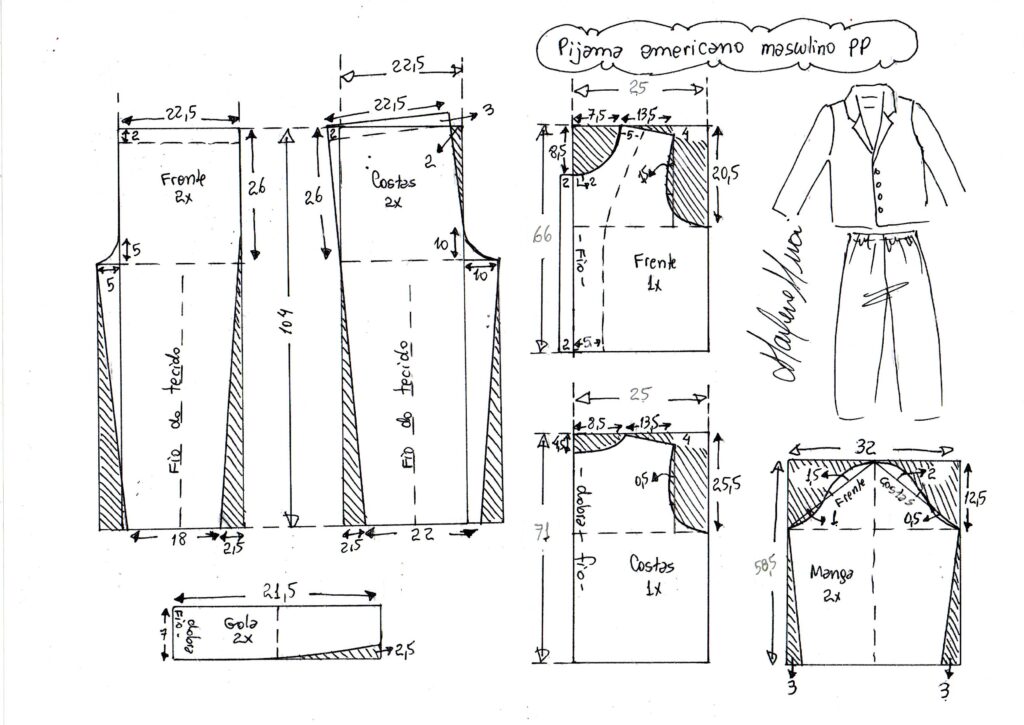 Pijama americano masculino PP
22,5
2
Frente
2x
26
5
5
Fio do tecido
18
2,5
104
22,5
22,5
3
2
2
Costas
2x
26
10
10
Fio do tecido
2,5
22
21,5
7
Fio -
dobra
Gola
2x
2,5
25
7,5
13,5
8,5
5
4
20,5
2
2
66
- Fio -
Frente
1x
2
5
25
8,5
13,5
4,5
4
0,5
25,5
71
- dobra + fio -
Costas
1x
Marlene Mukai
32
1,5
Frente
Costas
2
1
0,5
12,5
58,5
Manga
2x
3
3